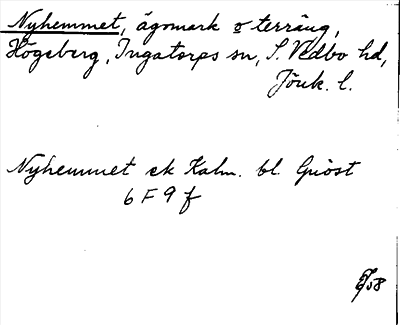 Nyhemmet, ägomark o terräng,
Högsberg, Ingatorps sn, S. Vedbo hd,
Jönk. l.
Nyhemmet ek Kalm. bl. Gnöst
6 F 9 f